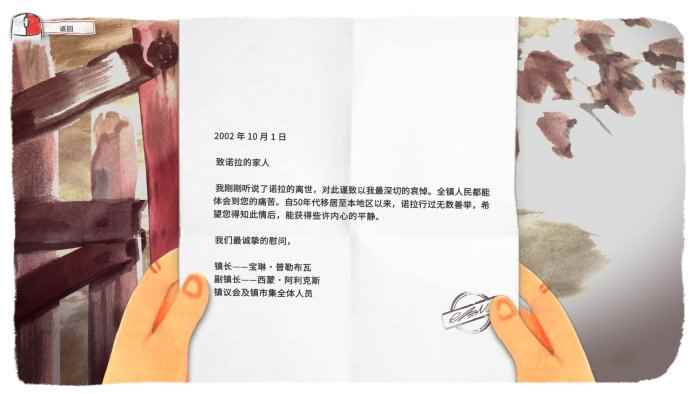 返回
2002 年 10 月 1 日
致诺拉的家人
我刚刚听说了诺拉的离世，对此谨致以我最深切的哀悼。全镇人民都能
体会到您的痛苦。自50年代移居至本地区以来，诺拉行过无数善举，希
望您得知此情后，能获得些许内心的平静。
我们最诚挚的慰问，
镇长——宝琳·普勒布瓦
副镇长——西蒙·阿利克斯
镇议会及镇市集全体人员